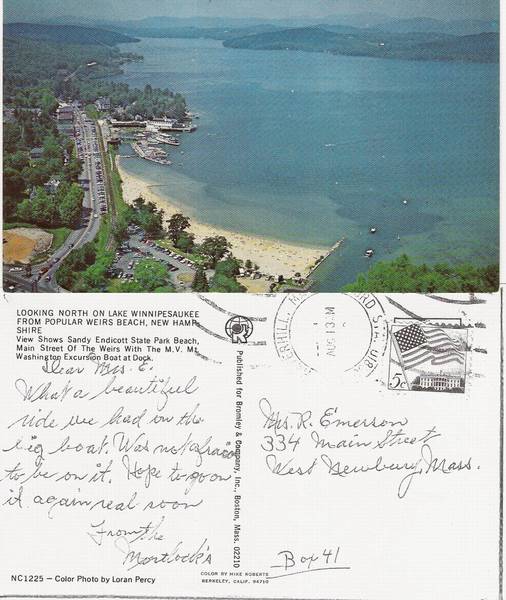 LOOKING NORTH ON LAKE WINNIPESAUKEE
FROM POPULAR WEIRS BEACH, NEW HAMP
SHIRE
View Shows Sandy Endicott State Park Beach,
Main Street Of The Weirs With The M.V. Mt.
Washington Excursion Boat at Dock.
Dear Mrs. E.
What a beautiful
ride we had on the
big boat. Was not afraid
to be on it. Hope to go on
it again real soon
From the
Mortlock's
NC1225 — Color Photo by Loran Percy
Published for Bromley & Company, Inc., Boston, Mass. 02210
COLOR BY MIKE ROBERTS
BERKELEY, CALIF. 94710
AUG 13 M
5c
Mrs. R. Emerson
334 Main Street
West Newbury, Mass.
Box 41